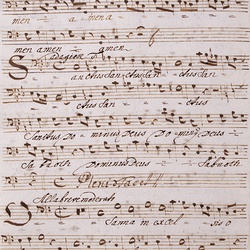 men a mena
men amen amen
Adagio
Sanctus sanctus sanctus
ctus san ctus
Sanctus Do minus Deus Do minus Deus
Sabaoth Dominus Deus Sabaoth
Pleni tacet
Alla breve moderato
Osanna in excel sis o